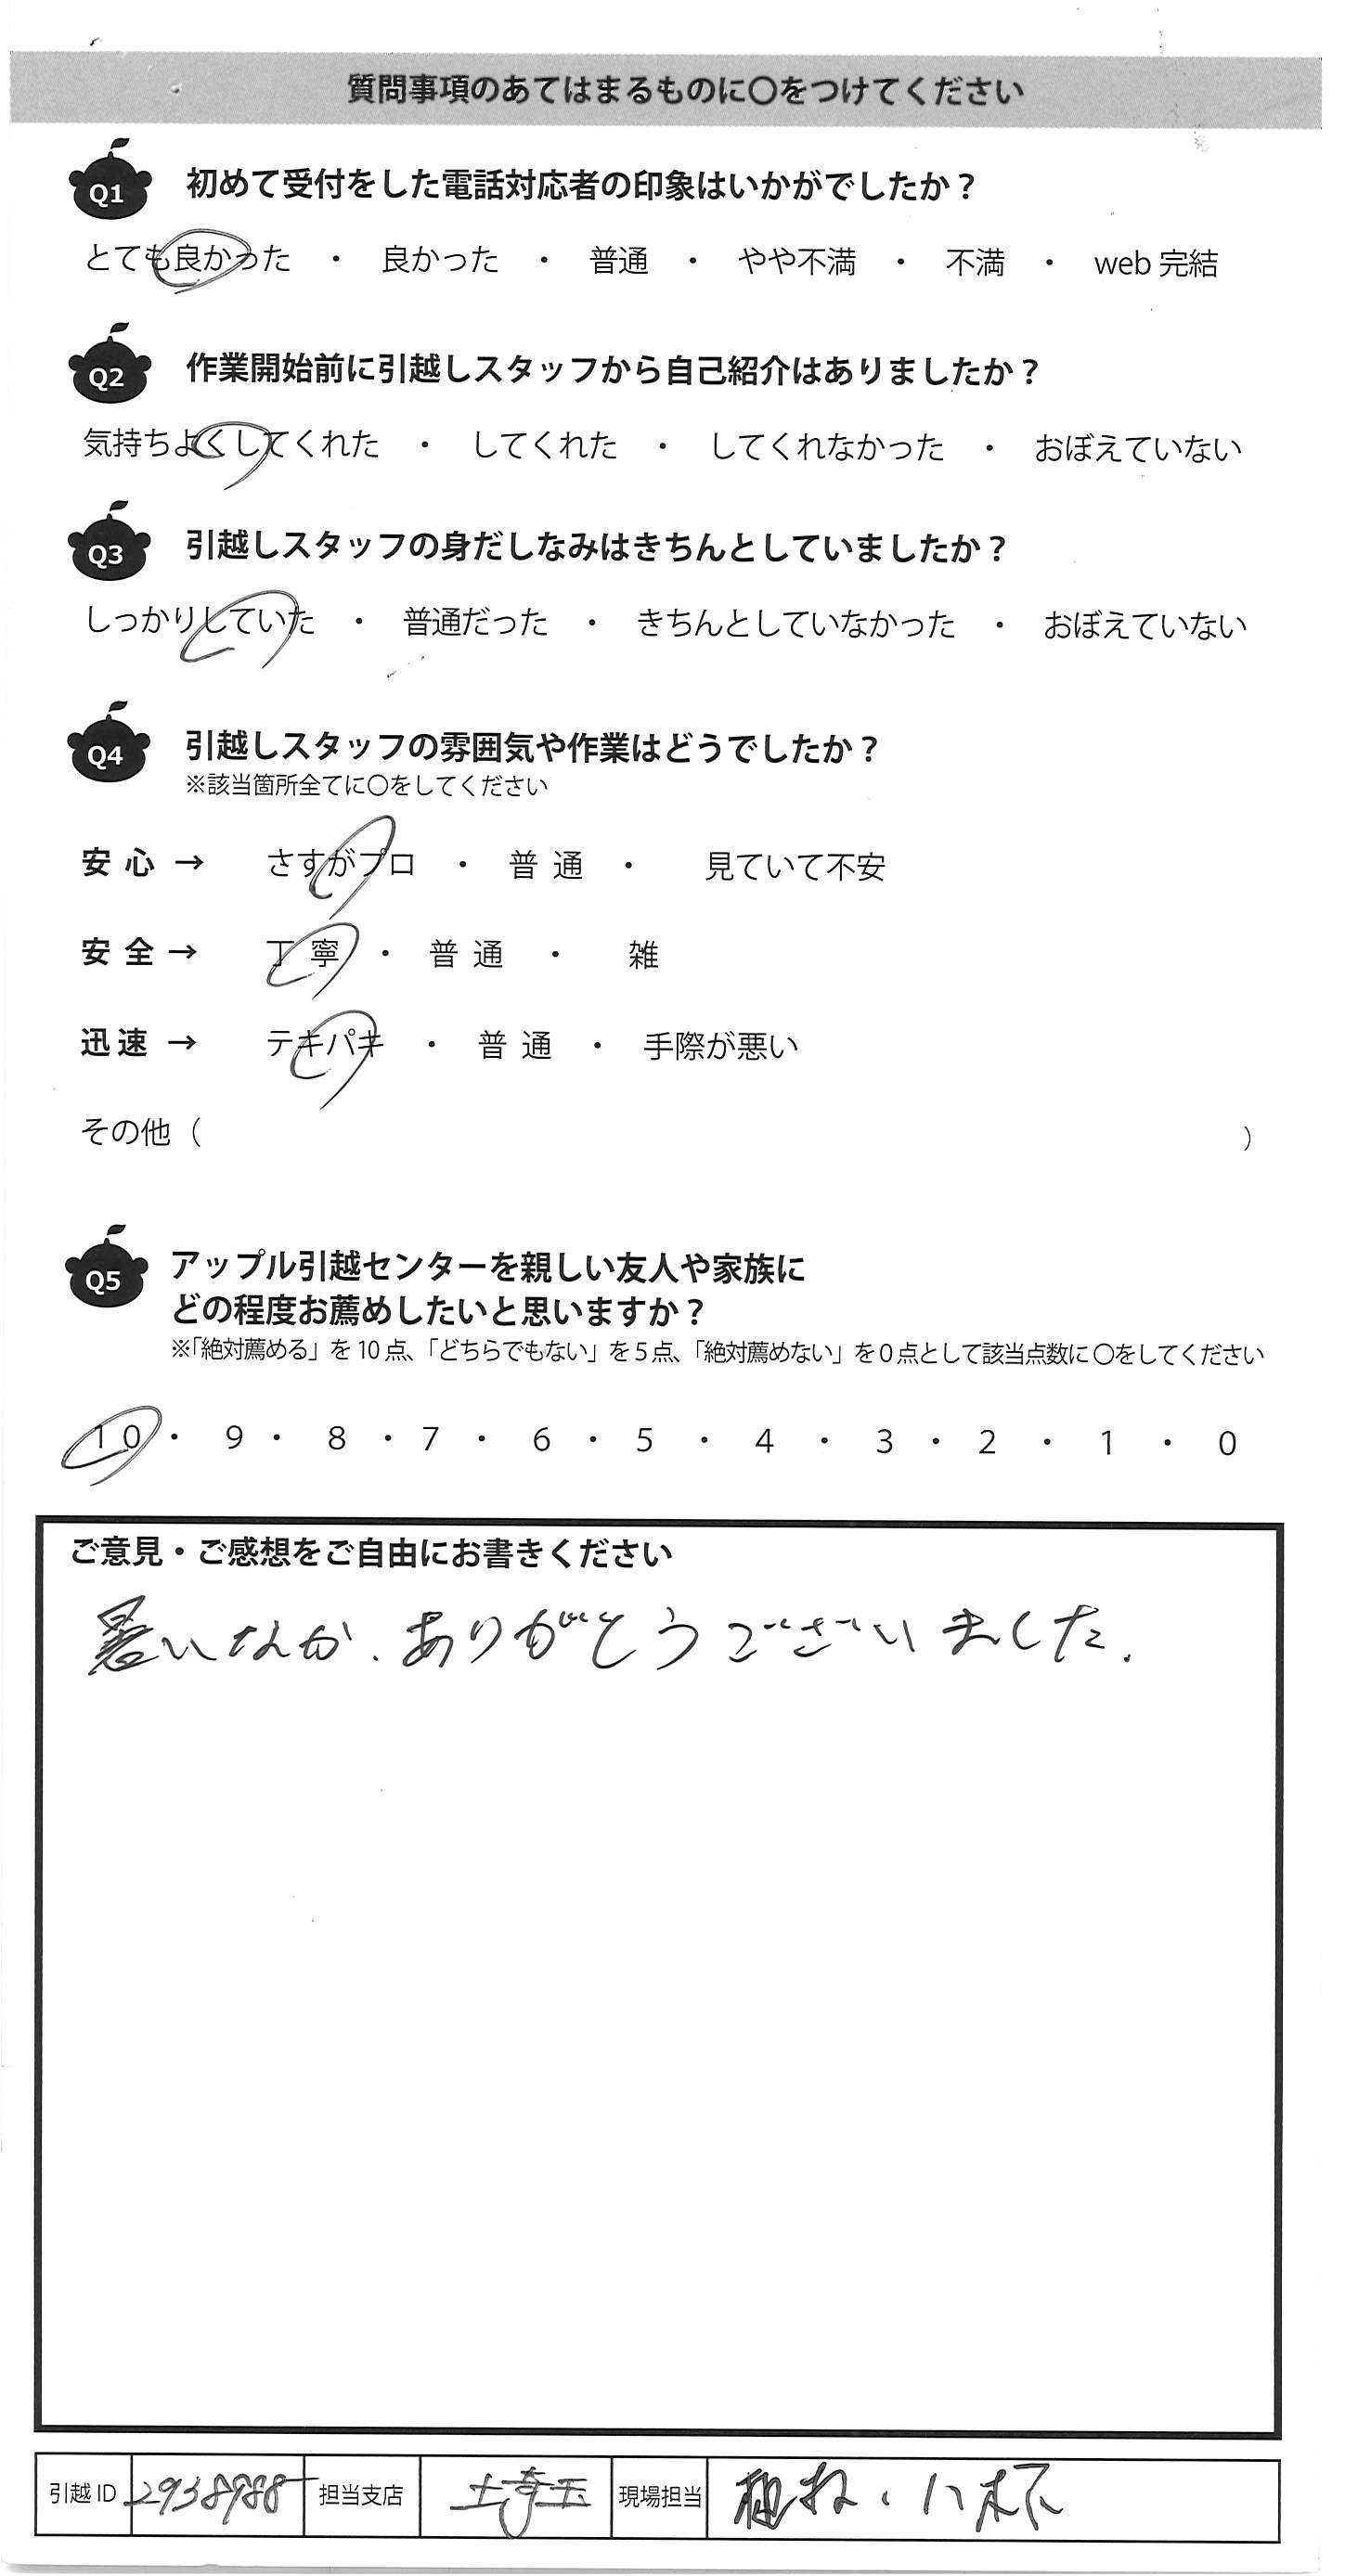 質問事項のあてはまるものに〇をつけてください
Q1 初めて受付をした電話対応者の印象はいかがでしたか？
とても良かった ・ 良かった ・ 普通 ・ やや不満 ・ 不満 ・ web 完結
Q2 作業開始前に引越しスタッフから自己紹介はありましたか？
気持ちよくしてくれた ・ してくれた ・ してくれなかった ・ おぼえていない
Q3 引越しスタッフの身だしなみはきちんとしていましたか？
しっかりしていた ・ 普通だった ・ きちんとしていなかった ・ おぼえていない
Q4 引越しスタッフの雰囲気や作業はどうでしたか？
※該当箇所全てに〇をしてください
安心 → さすがプロ ・ 普通 ・ 見ていて不安
安全 → 丁寧 ・ 普通 ・ 雑
迅速 → テキパキ ・ 普通 ・ 手際が悪い
その他（ ）
Q5 アップル引越センターを親しい友人や家族に
どの程度お薦めしたいと思いますか？
※「絶対薦める」を 10 点、「どちらでもない」を 5 点、「絶対薦めない」を 0 点として該当点数に〇をしてください
10 ・ 9 ・ 8 ・ 7 ・ 6 ・ 5 ・ 4 ・ 3 ・ 2 ・ 1 ・ 0
ご意見・ご感想をご自由にお書きください
暑いなか、ありがとうございました.
引越 ID 2938988 担当支店 埼玉 現場担当